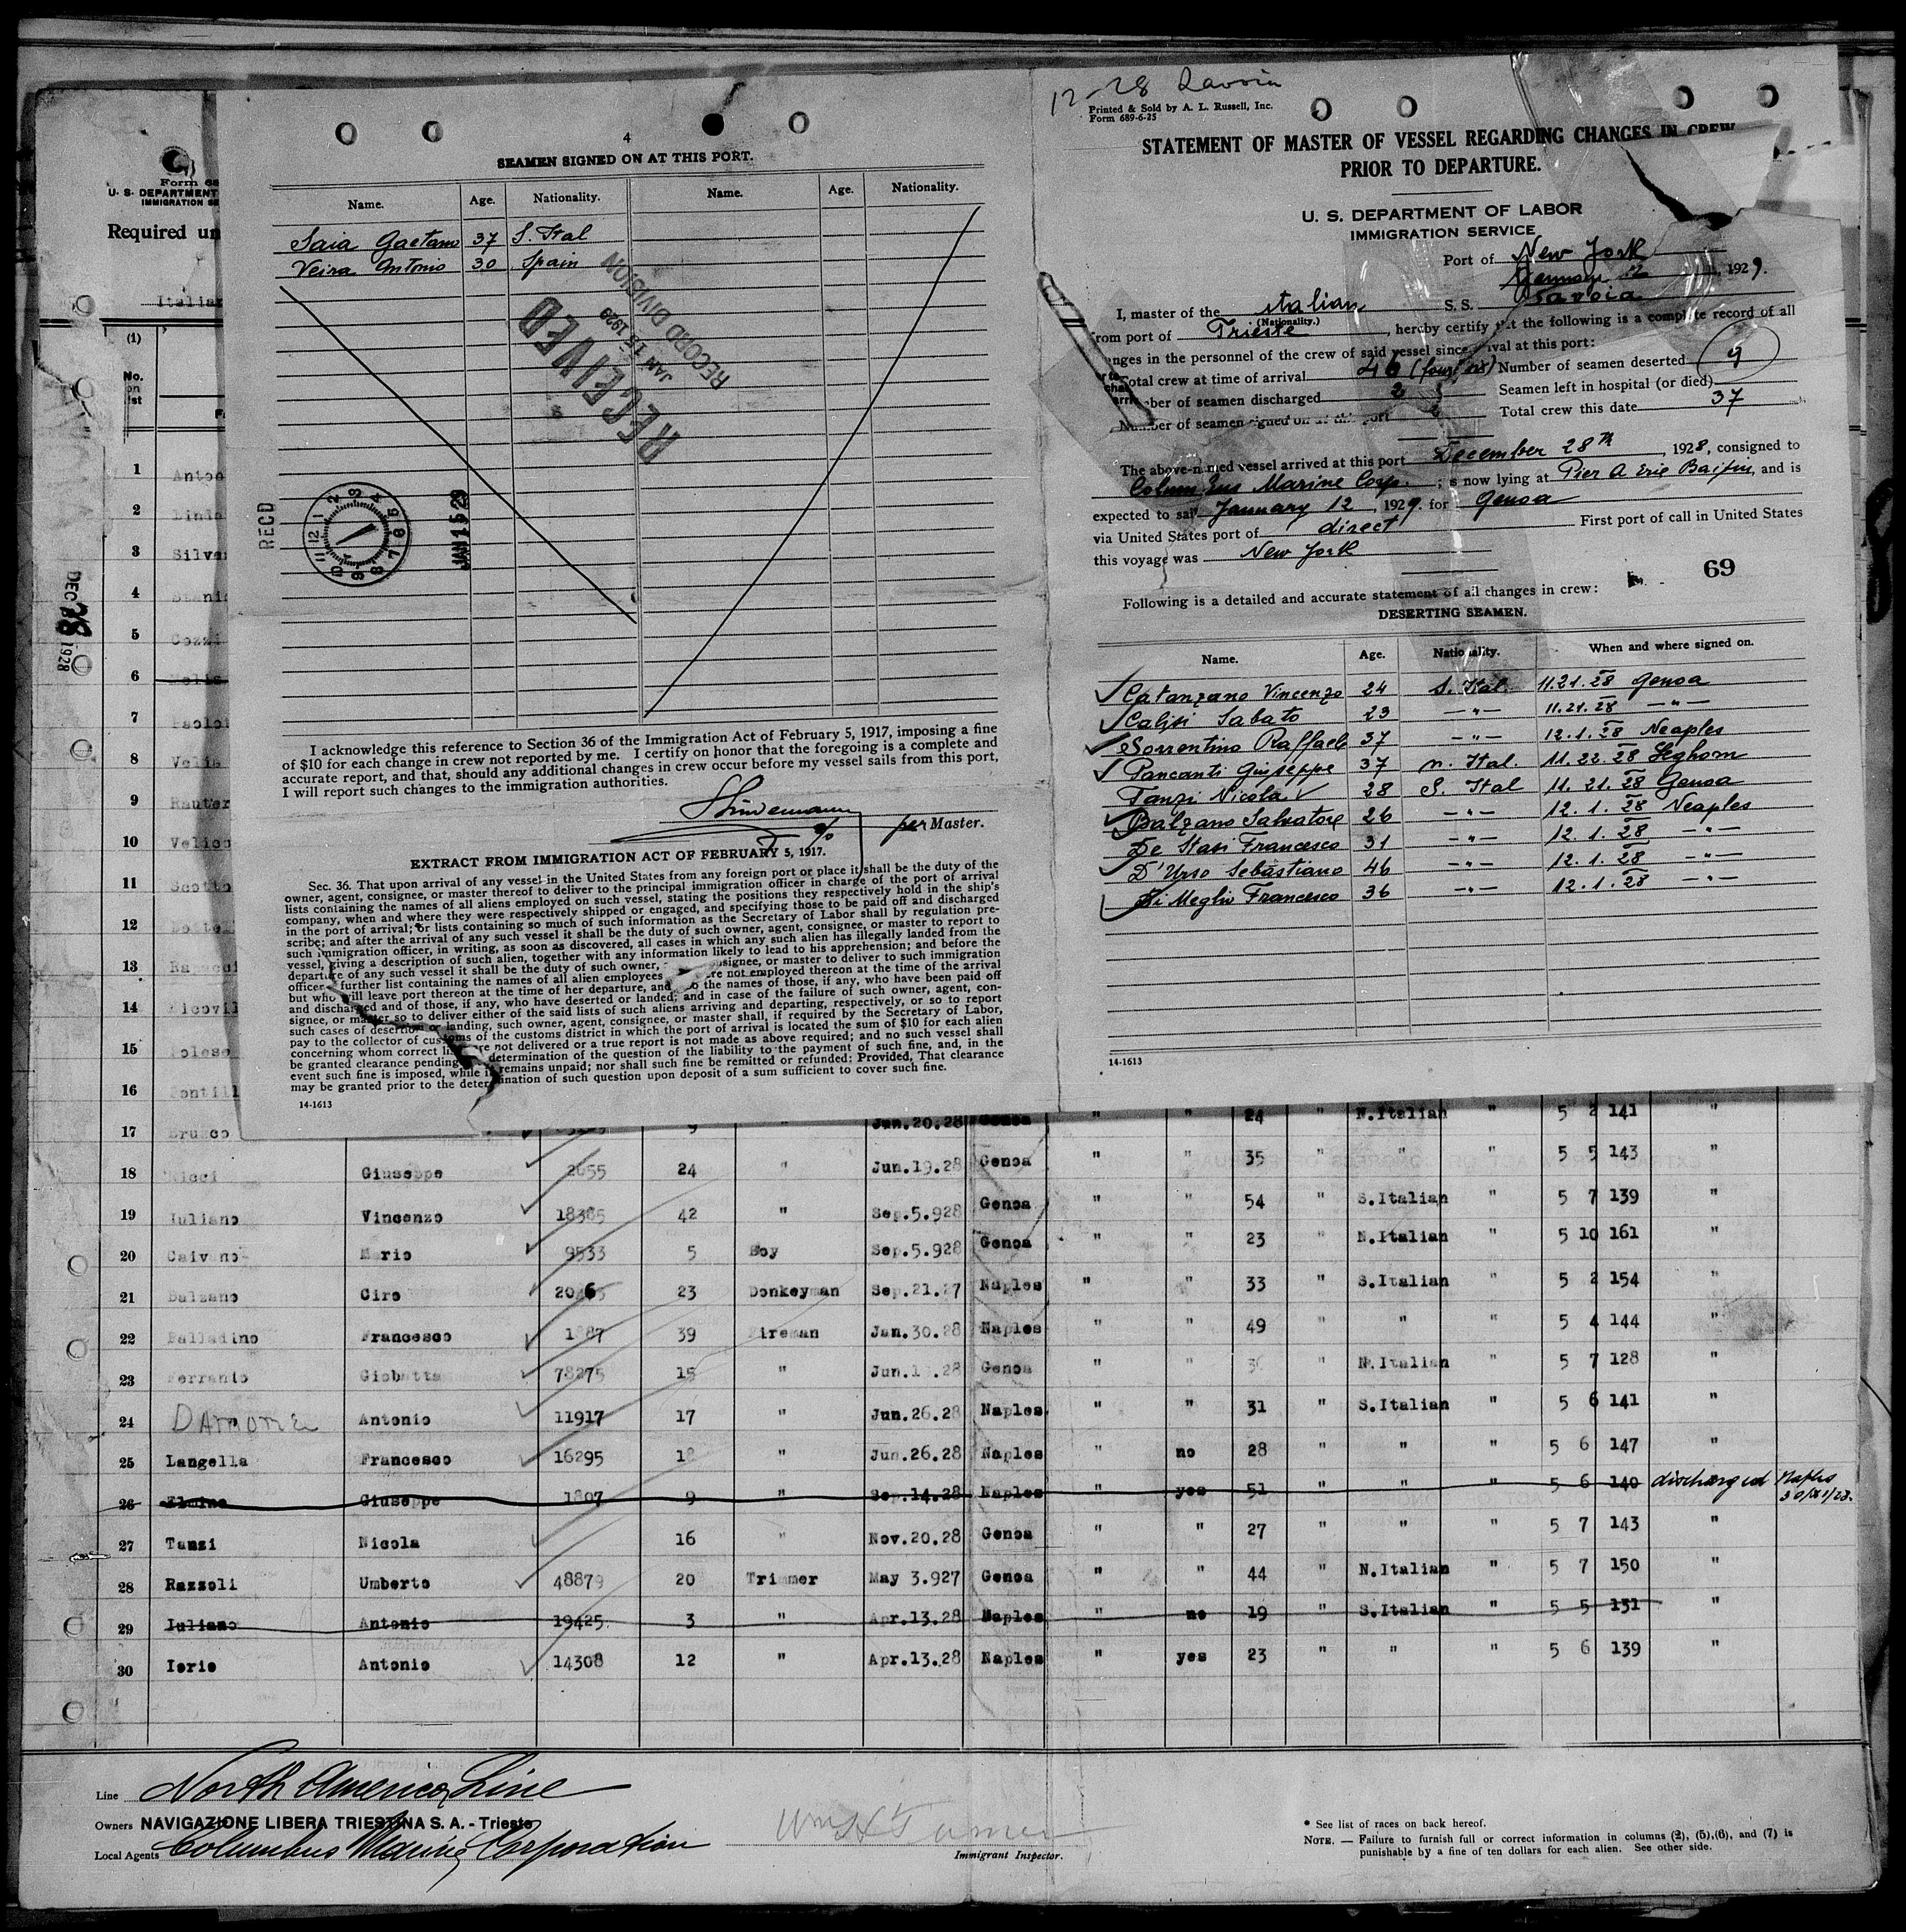 4
SEAMEN SIGNED ON AT THIS PORT.
Name. Age. Nationality. Name. Age. Nationality.
Saia Gaetano 37 S. Ital
Veira Antonio 30 Spain
RECEIVED
JAN 15 1929
RECORD DIVISION
RECD
JAN 15 29
I acknowledge this reference to Section 36 of the Immigration Act of February 5, 1917, imposing a fine
of $10 for each change in crew not reported by me. I certify on honor that the foregoing is a complete and
accurate report, and that, should any additional changes in crew occur before my vessel sails from this port,
I will report such changes to the immigration authorities.
per Master.
EXTRACT FROM IMMIGRATION ACT OF FEBRUARY 5, 1917.
Sec. 36. That upon arrival of any vessel in the United States from any foreign port or place it shall be the duty of the
owner, agent, consignee, or master thereof to deliver to the principal immigration officer in charge of the port of arrival
lists containing the names of all aliens employed on such vessel, stating the positions they respectively hold in the ship's
company, when and where they were respectively shipped or engaged, and specifying those to be paid off and discharged
in the port of arrival; or lists containing so much of such information as the Secretary of Labor shall by regulation pre-
scribe; and after the arrival of any such vessel it shall be the duty of such owner, agent, consignee, or master to report to
such immigration officer, in writing, as soon as discovered, all cases in which any such alien has illegally landed from the
vessel, giving a description of such alien, together with any information likely to lead to his apprehension; and before the
departure of any such vessel it shall be the duty of such owner, consignee, or master to deliver to such immigration
officer further list containing the names of all alien employees were not employed thereon at the time of the arrival
but who will leave port thereon at the time of her departure, and the names of those, if any, who have been paid off
and discharged and of those, if any, who have deserted or landed; and in case of the failure of such owner, agent, con-
signee, or master so to deliver either of the said lists of such aliens arriving and departing, respectively, or so to report
such cases of desertion or landing, such owner, agent, consignee, or master shall, if required by the Secretary of Labor,
pay to the collector of customs of the customs district in which the port of arrival is located the sum of $10 for each alien
concerning whom correct are not delivered or a true report is not made as above required; and no such vessel shall
be granted clearance pending determination of the question of the liability to the payment of such fine, and, in the
event such fine is imposed, while it remains unpaid; nor shall such fine be remitted or refunded: Provided, That clearance
may be granted prior to the determination of such question upon deposit of a sum sufficient to cover such fine.
14-1613
12-28 Savoia
Printed & Sold by A. L. Russell, Inc.
Form 689-6-25
STATEMENT OF MASTER OF VESSEL REGARDING CHANGES IN CREW
PRIOR TO DEPARTURE.
U. S. DEPARTMENT OF LABOR
IMMIGRATION SERVICE
Port of New York
January 12, 1929.
I, master of the italian S. S. Savoia
(Nationality.)
from port of Trieste, hereby certify that the following is a complete record of all
changes in the personnel of the crew of said vessel since arrival at this port:
Total crew at time of arrival 46 Number of seamen deserted 9
Number of seamen discharged 2 Seamen left in hospital (or died)
Number of seamen signed on at this port 2 Total crew this date 37
The above-named vessel arrived at this port December 28th, 1928, consigned to
Columbus Marine Corp.; is now lying at Pier A Erie Basin, and is
expected to sail January 12, 1929. for Genoa
via United States port of direct First port of call in United States
this voyage was New York
69
Following is a detailed and accurate statement of all changes in crew:
DESERTING SEAMEN.
Name. Age. Nationality. When and where signed on.
Catanzano Vincenzo 24 S. Ital. 11.21.28 Genoa
Calisi Sabato 23 —"— 11.21.28 —"—
Sorrentino Raffaele 37 —"— 12.1.28 Neaples
Pancanti Giuseppe 37 n. Ital. 11.22.28 Leghorn
Tanzi Nicola 28 S. Ital 11.21.28 Genoa
Balzano Salvatore 26 —"— 12.1.28 Neaples
De Stasi Francesco 31 —"— 12.1.28 —"—
D'Urso Sebastiano 46 —"— 12.1.28 —"—
Di Meglio Francesco 36 —"— 12.1.28 —"—
14-1613
Form 68
U. S. DEPARTMENT
IMMIGRATION SE
Required un
Italian
(1)
No.
on
list
DEC 28 1928
1 Anto
2
3 Silve
4 Stani
5 Cozzi
6
7 Paolo
8 Velia
9 Rauter
10 Velico
11 Scotto
12
13
14
15
16 Pontill
17 Brusco 9 " Jun.20.28 Genoa " " 24 " N.Italian " 5 2 141 "
18 Ricci Giuseppe 2655 24 " Jun.19.28 Genoa " " 35 " " " 5 5 143 "
19 Iuliano Vincenzo 18385 42 " Sep.5.928 Genoa " " 54 " S.Italian " 5 7 139 "
20 Caivano Mario 9533 5 Boy Sep.5.928 Genoa " " 23 " N.Italian " 5 10 161 "
21 Balzano Ciro 23 Donkeyman Sep.21.27 Naples " " 33 " S.Italian " 5 2 154 "
22 Palladino Francesco 39 Fireman Jan.30.28 Naples " " 49 " " " 5 4 144 "
23 Ferranto Giobatta 78275 15 " Genoa " " " N.Italian " 5 7 128 "
24 DAmOne Antonio 11917 17 " Jun.26.28 Naples " " 31 " S.Italian " 5 6 141 "
25 Langella Francesco 16295 18 " Jun.26.28 Naples " no 28 " " " 5 6 147 "
26 Giuseppe 1807 9 " Sep.14.28 Naples " yes 51 " " " 5 6 140 discharged Naples
27 Tanzi Nicola 16 " Nov.20.28 Genoa " " 27 " " " 5 7 143 "
28 Razzoli Umberto 48879 20 Trimmer May 3.927 Genoa " " 44 " N.Italian " 5 7 150 "
29 Iuliano Antonio 19425 3 " Apr.13.28 Naples " no 19 " S.Italian " 5 5 131
30 Iorio Antonio 14308 12 " Apr.13.28 Naples " yes 23 " " " 5 6 139 "
Line North America Line
Owners NAVIGAZIONE LIBERA TRIESTINA S. A. - Trieste
Local Agents Columbus Marine Corporation
Immigrant Inspector.
* See list of races on back hereof.
NOTE. — Failure to furnish full or correct information in columns (2), (5),(6), and (7) is
punishable by a fine of ten dollars for each alien. See other side.